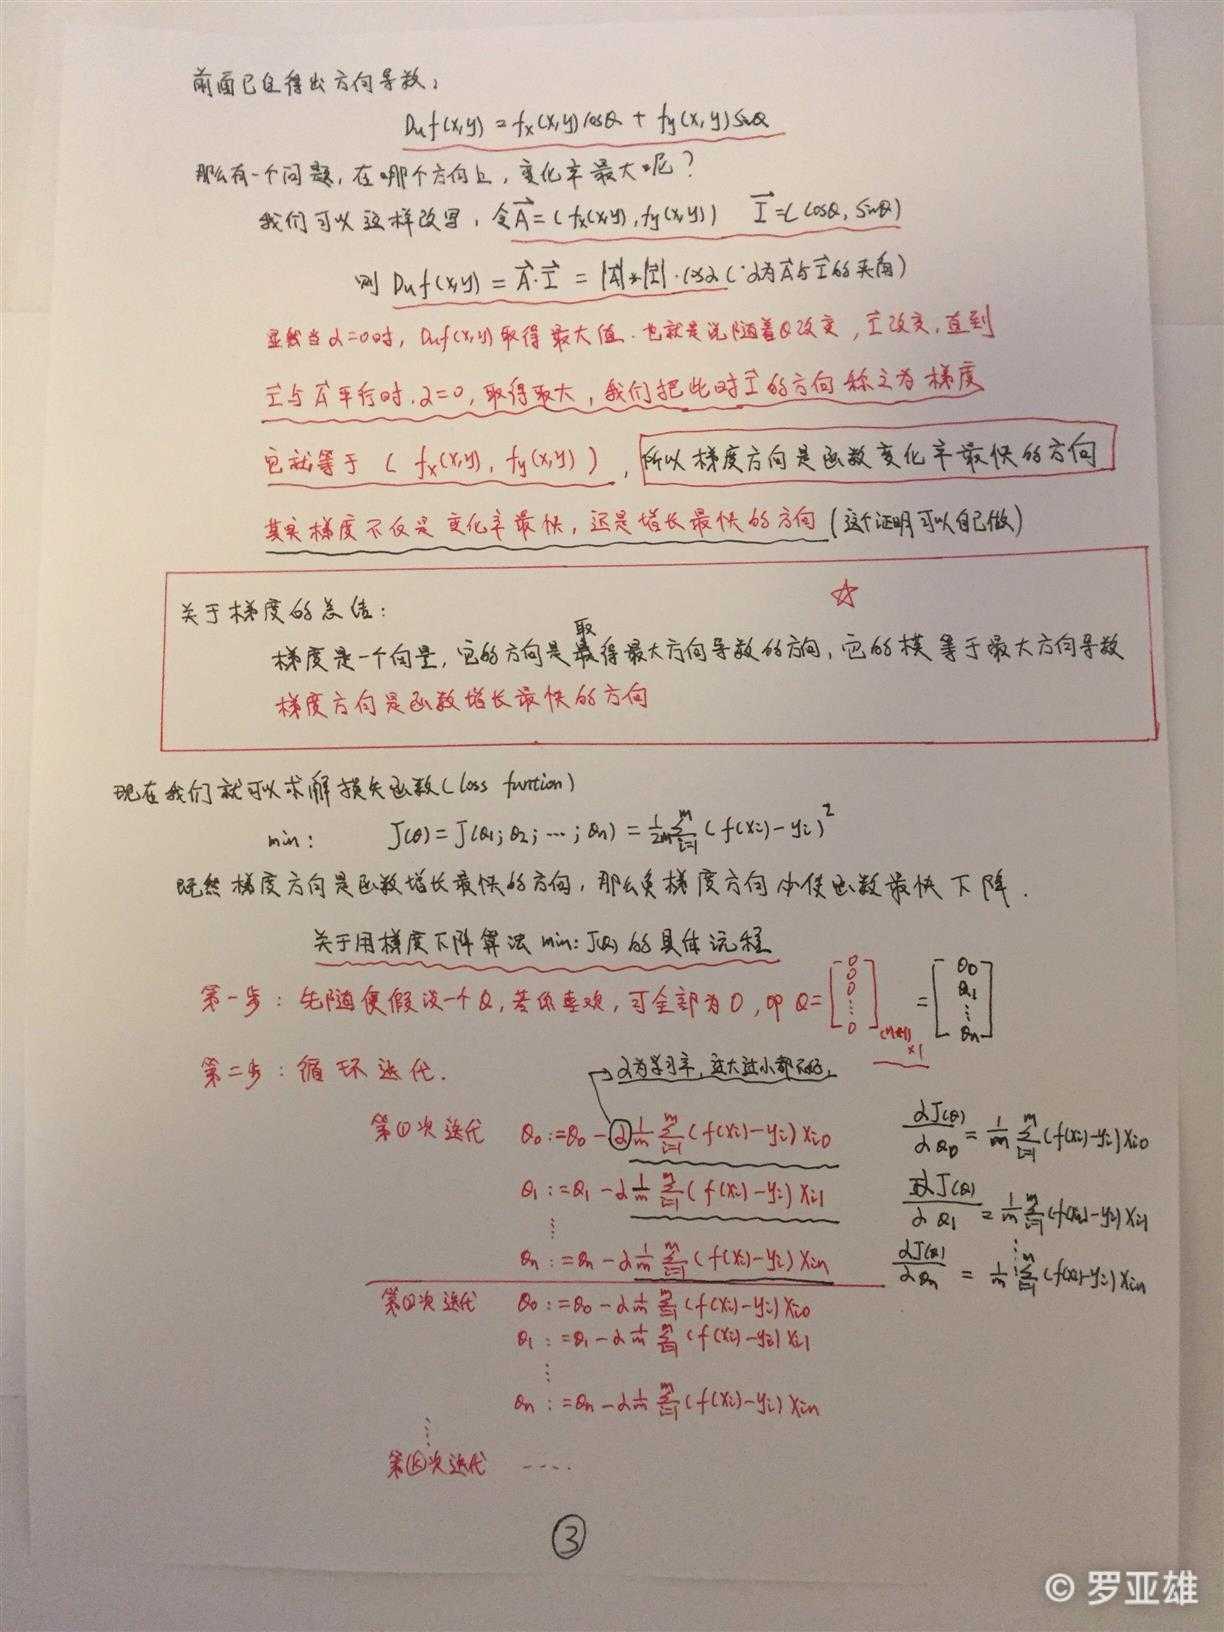 前面已经得出方向导数:
Duf(x,y) = fx(x,y)cosθ + fy(x,y)sinθ
那么有一个问题,在哪个方向上,变化率最大呢?
我们可以这样改写,令A→=(fx(x,y),fy(x,y)) I→=(cosθ,sinθ)
则 Duf(x,y) = A→·I→ = |A→|*|I→|·cosα (α为A→与I→的夹角)
显然当α=0时,Duf(x,y)取得最大值.也就是说随着θ改变,I→改变,直到
I→与A→平行时.α=0,取得最大,我们把此时I→的方向称之为梯度
它就等于 (fx(x,y), fy(x,y)),所以梯度方向是函数变化率最快的方向
其实梯度不仅是变化率最快,还是增长最快的方向(这个证明可以自己做)
关于梯度的总结: ☆
取
梯度是一个向量,它的方向是得最大方向导数的方向,它的模等于最大方向导数
梯度方向是函数增长最快的方向
现在我们就可以求解损失函数(loss function)
min: J(θ)=J(θ1;θ2;…;θn)=1/2m Σ_{i=1}^{m}(f(xi)-yi)²
既然梯度方向是函数增长最快的方向,那么负梯度方向会使函数最快下降.
关于用梯度下降算法 min:J(θ) 的具体流程
第一步:先随便假设一个θ,若你喜欢,可全部为0,即θ=[0 0 0 ⋮ 0](n+1)×1 = [θ0 θ1 ⋮ θn]
第二步:循环迭代. α为学习率,过大过小都不好,
第①次迭代 θ0:=θ0-α 1/m Σ_{i=1}^{m}(f(xi)-yi)xi0 ∂J(θ)/∂θ0 = 1/m Σ_{i=1}^{m}(f(xi)-yi)xi0
θ1:=θ1-α 1/m Σ_{i=1}^{m}(f(xi)-yi)xi1 ∂J(θ)/∂θ1 = 1/m Σ_{i=1}^{m}(f(xi)-yi)xi1
⋮ ⋮
θn:=θn-α 1/m Σ_{i=1}^{m}(f(xi)-yi)xin ∂J(θ)/∂θn = 1/m Σ_{i=1}^{m}(f(xi)-yi)xin
第②次迭代 θ0:=θ0-α 1/m Σ_{i=1}^{m}(f(xi)-yi)xi0
θ1:=θ1-α 1/m Σ_{i=1}^{m}(f(xi)-yi)xi1
⋮
θn:=θn-α 1/m Σ_{i=1}^{m}(f(xi)-yi)xin
⋮
第ⓚ次迭代 ····
③
© 罗亚雄